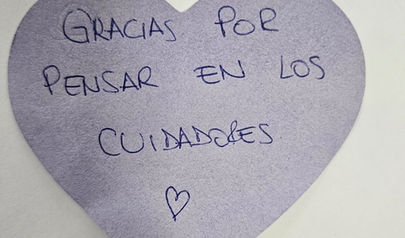 GRACIAS POR
PENSAR EN LOS
CUIDADORES